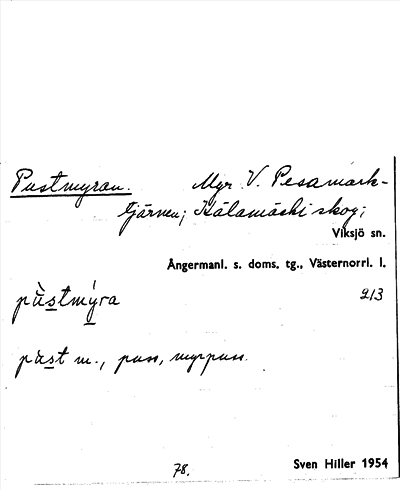 Pustmyran. Myr V. Pesamark-
tjärnen; Kälamäski skog;
Viksjö sn.
Ångermanl. s. doms. tg., Västernorrl. l.
pùstmýra 213
püst m., puss, myrpuss.
78. Sven Hiller 1954